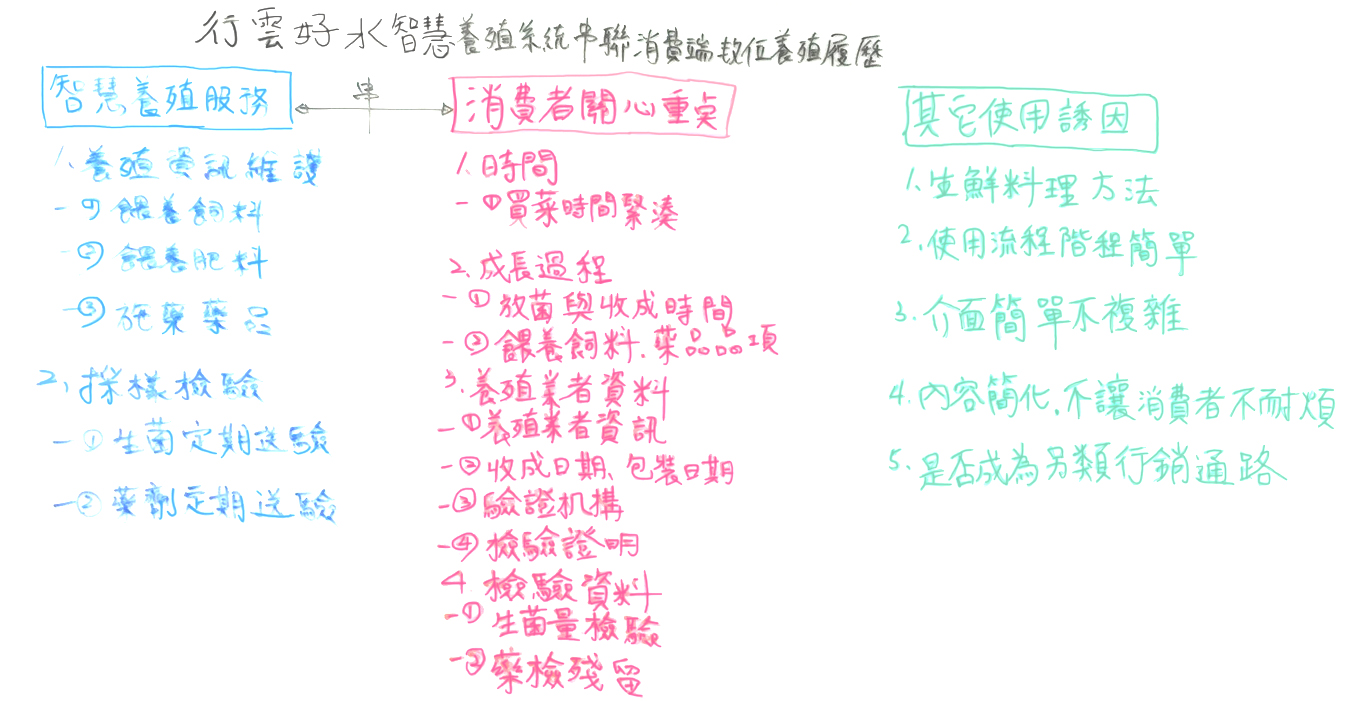 行雲好水智慧養殖系統串聯消費端數位養殖履歷
智慧養殖服務
串
消費者關心重點
其它使用誘因
1、養殖資訊維護
-① 餵養飼料
-② 餵養肥料
-③ 施藥藥品
2、採樣檢驗
-① 生菌定期送驗
-② 藥劑定期送驗
1、時間
-① 買菜時間緊湊
2、成長過程
-① 放菌與收成時間
-② 餵養飼料、藥品品項
3、養殖業者資料
-① 養殖業者資訊
-② 收成日期、包裝日期
-③ 驗證机構
-④ 檢驗證明
4 檢驗資料
-① 生菌量檢驗
-② 藥檢殘留
1、生鮮料理方法
2、使用流程階程簡單
3、介面簡單不複雜
4、內容簡化、不讓消費者不耐煩
5、是否成為另類行銷通路